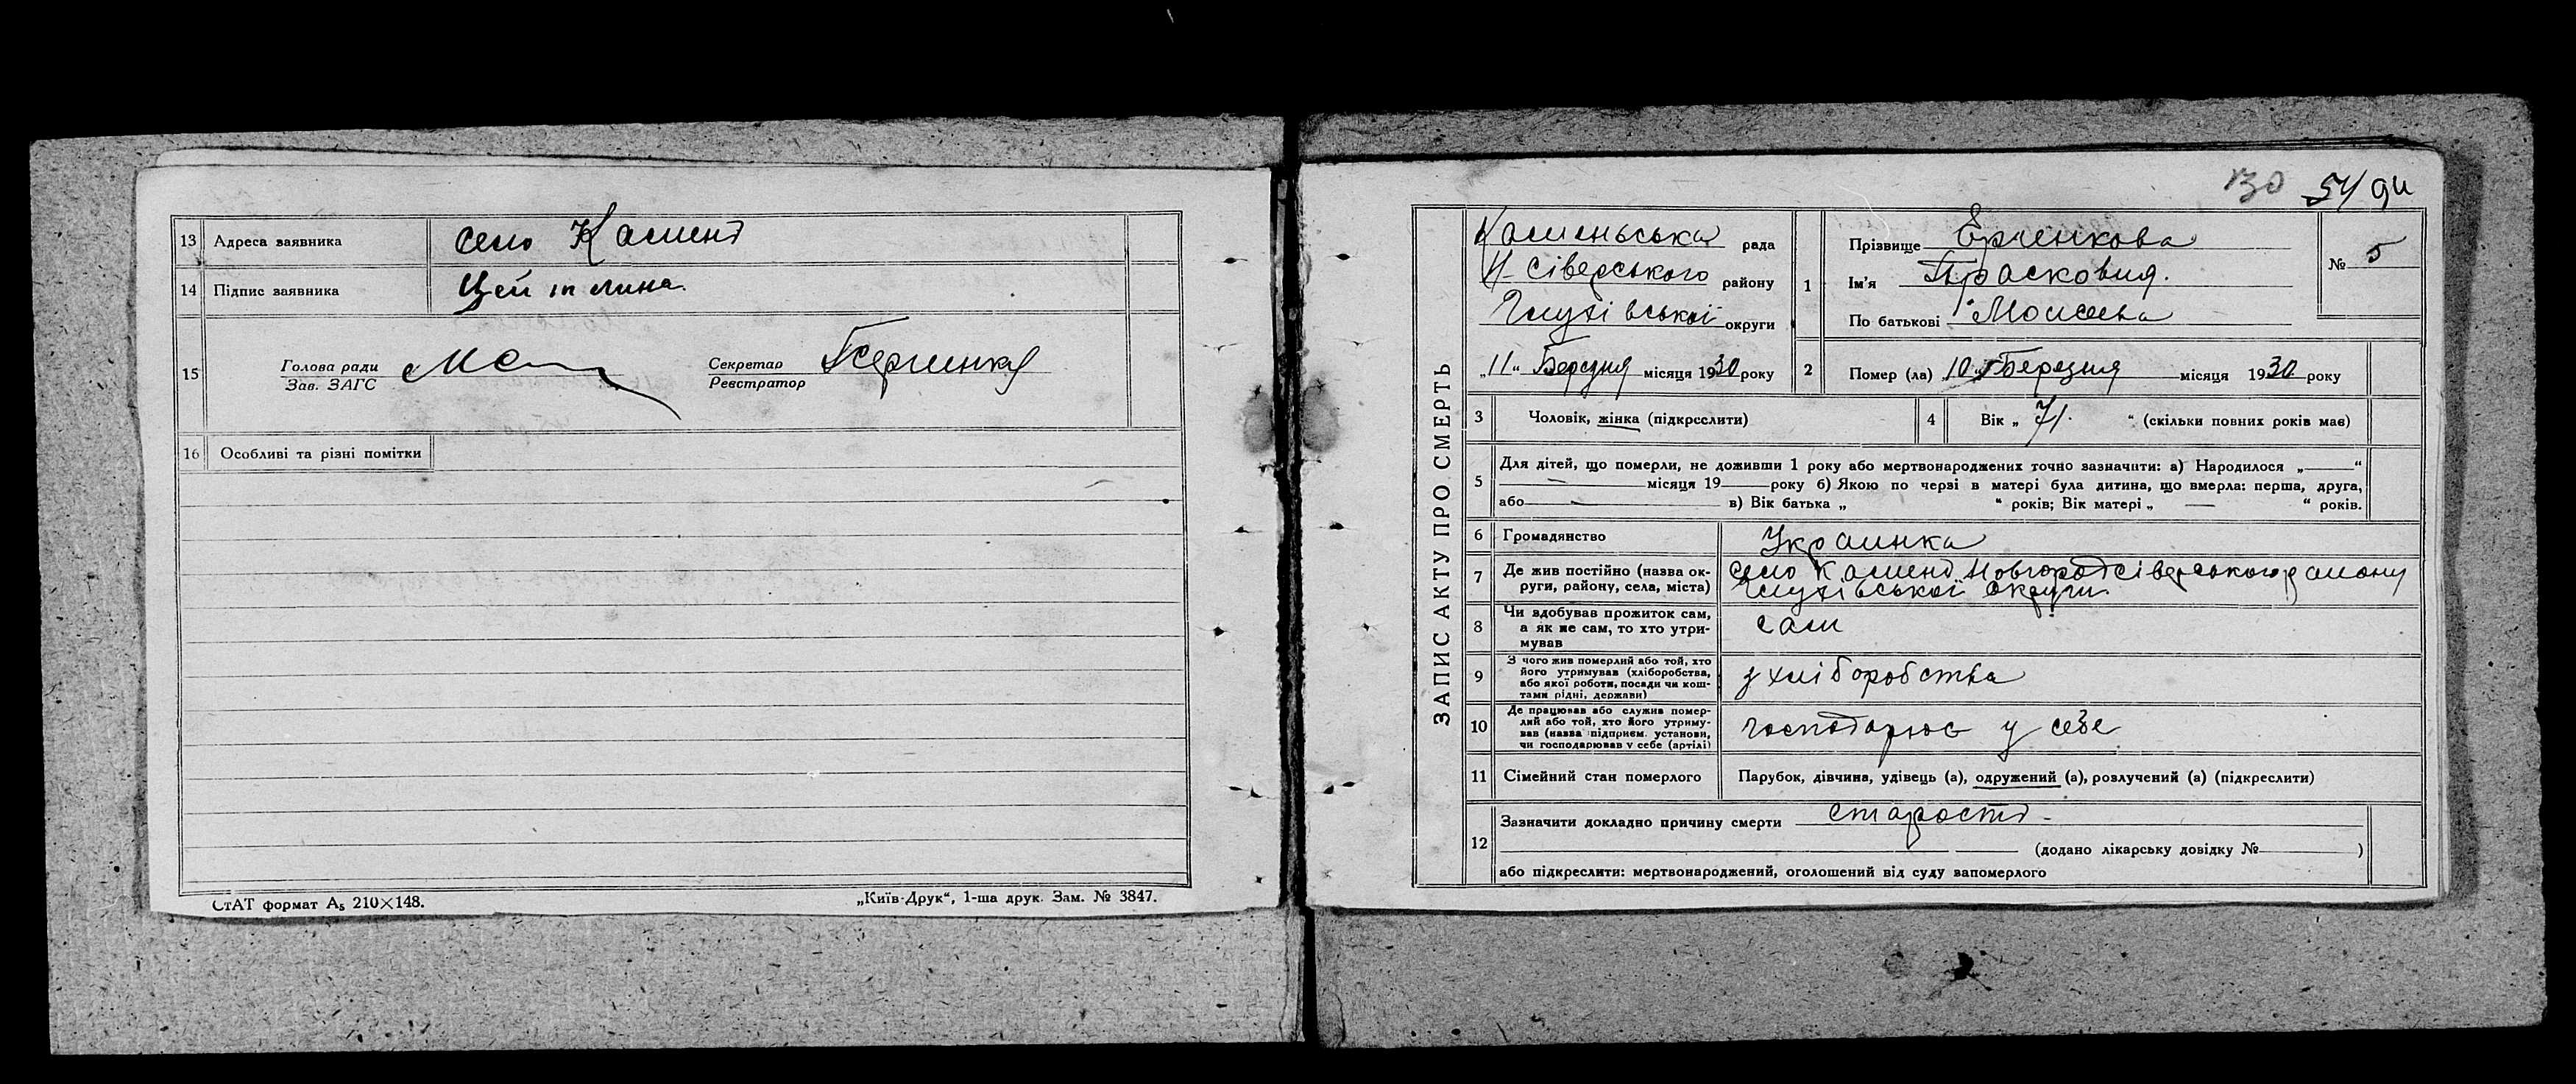 13 Адреса заявника село Камень
14 Підпис заявника
15 Голова ради Секретар
Зав. ЗАГС Реєстратор
16 Особливі та різні помітки
СтАТ формат А5 210×148.
„Київ-Друк“, 1-ша друк. Зам. № 3847.
130 54 94
ЗАПИС АКТУ ПРО СМЕРТЬ
Каменьська рада
Н-Сіверського району
Глухівської округи
„11“ Березня місяця 1930 року
1 Прізвище
Ім'я Прасковия.
По батькові Моисеевна
№ 5
2 Помер (ла) „10“ Березня місяця 1930 року
3 Чоловік, жінка (підкреслити)
4 Вік „ 71. “ (скільки повних років має)
5 Для дітей, що померли, не доживши 1 року або мертвонароджених точно зазначити: а) Народилося „ “
— місяця 19 року б) Якою по черзі в матері була дитина, що вмерла: перша, друга,
або — в) Вік батька „ “ років; Вік матері „ — “ років.
6 Громадянство Украинка
7 Де жив постійно (назва ок-
руги, району, села, міста)
село Камень Новгородсіверського району
Глухівської Округи
8 Чи вдобував прожиток сам,
а як не сам, то хто утри-
мував
сам
9 З чого жив померлий або той, хто
його утримував (хліборобства,
або якої роботи, посади чи кош-
тами рідні, держави)
з хліборобства
10 Де працював або служив помер-
лий або той, хто його утриму-
вав (назва підприєм. установи,
чи господарював у себе (артілі)
господарює у себе
11 Сімейний стан померлого Парубок, дівчина, удівець (а), одружений (а), розлучений (а) (підкреслити)
12 Зазначити докладно причину смерти старость
(додано лікарську довідку № )
або підкреслити: мертвонароджений, оголошений від суду запомерлого